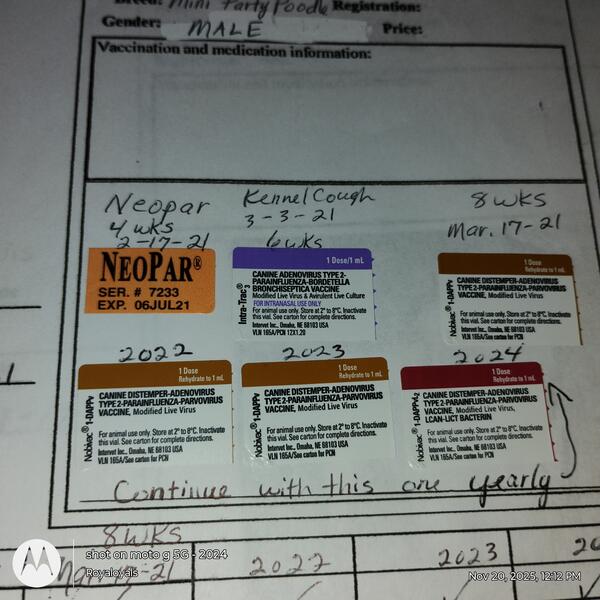 Breed: Mini Party Poodle Registration:
Gender: MALE Price:
Vaccination and medication information:
Neopar
4 wks
2-17-21
Kennel Cough
3-3-21
6 wks
8 wks
Mar. 17-21
NEOPAR®
SER. # 7233
EXP. 06JUL21
Intra-Trac®3
1 Dose/1 mL
CANINE ADENOVIRUS TYPE 2-
PARAINFLUENZA-BORDETELLA
BRONCHISEPTICA VACCINE
Modified Live Virus & Avirulent Live Culture
FOR INTRANASAL USE ONLY
For animal use only. Store at 2° to 8°C. Inactivate
this vial. See carton for complete directions.
Intervet Inc. Omaha, NE 68103 USA
VLN 165A/PCN 12X1.20
Nobivac® 1-DAPPv
1 Dose
Rehydrate to 1 mL
CANINE DISTEMPER-ADENOVIRUS
TYPE 2-PARAINFLUENZA-PARVOVIRUS
VACCINE, Modified Live Virus
For animal use only. Store at 2° to 8°C. Inactivate
this vial. See carton for complete directions.
Intervet Inc. Omaha, NE 68103 USA
VLN 165A/See carton for PCN
2022
Nobivac® 1-DAPPv
1 Dose
Rehydrate to 1 mL
CANINE DISTEMPER-ADENOVIRUS
TYPE 2-PARAINFLUENZA-PARVOVIRUS
VACCINE, Modified Live Virus
For animal use only. Store at 2° to 8°C. Inactivate
this vial. See carton for complete directions.
Intervet Inc. Omaha, NE 68103 USA
VLN 165A/See carton for PCN
2023
Nobivac® 1-DAPPv
1 Dose
Rehydrate to 1 mL
CANINE DISTEMPER-ADENOVIRUS
TYPE 2-PARAINFLUENZA-PARVOVIRUS
VACCINE, Modified Live Virus
For animal use only. Store at 2° to 8°C. Inactivate
this vial. See carton for complete directions.
Intervet Inc. Omaha, NE 68103 USA
VLN 165A/See carton for PCN
2024
1 Dose
Rehydrate to 1 mL
CANINE DISTEMPER-ADENOVIRUS
TYPE 2-PARAINFLUENZA-PARVOVIRUS
VACCINE, Modified Live Virus,
LCAN-LICT BACTERIN
For animal use only. Store at 2° to 8°C. Inactivate
this vial. See carton for complete directions.
Intervet Inc. Omaha, NE 68103 USA
VLN 165A/See carton for PCN
Continue with this one yearly
8 WKS
2022 2023 20
shot on moto g 5G - 2024
Royaloyals
Nov 20, 2025, 12:12 PM